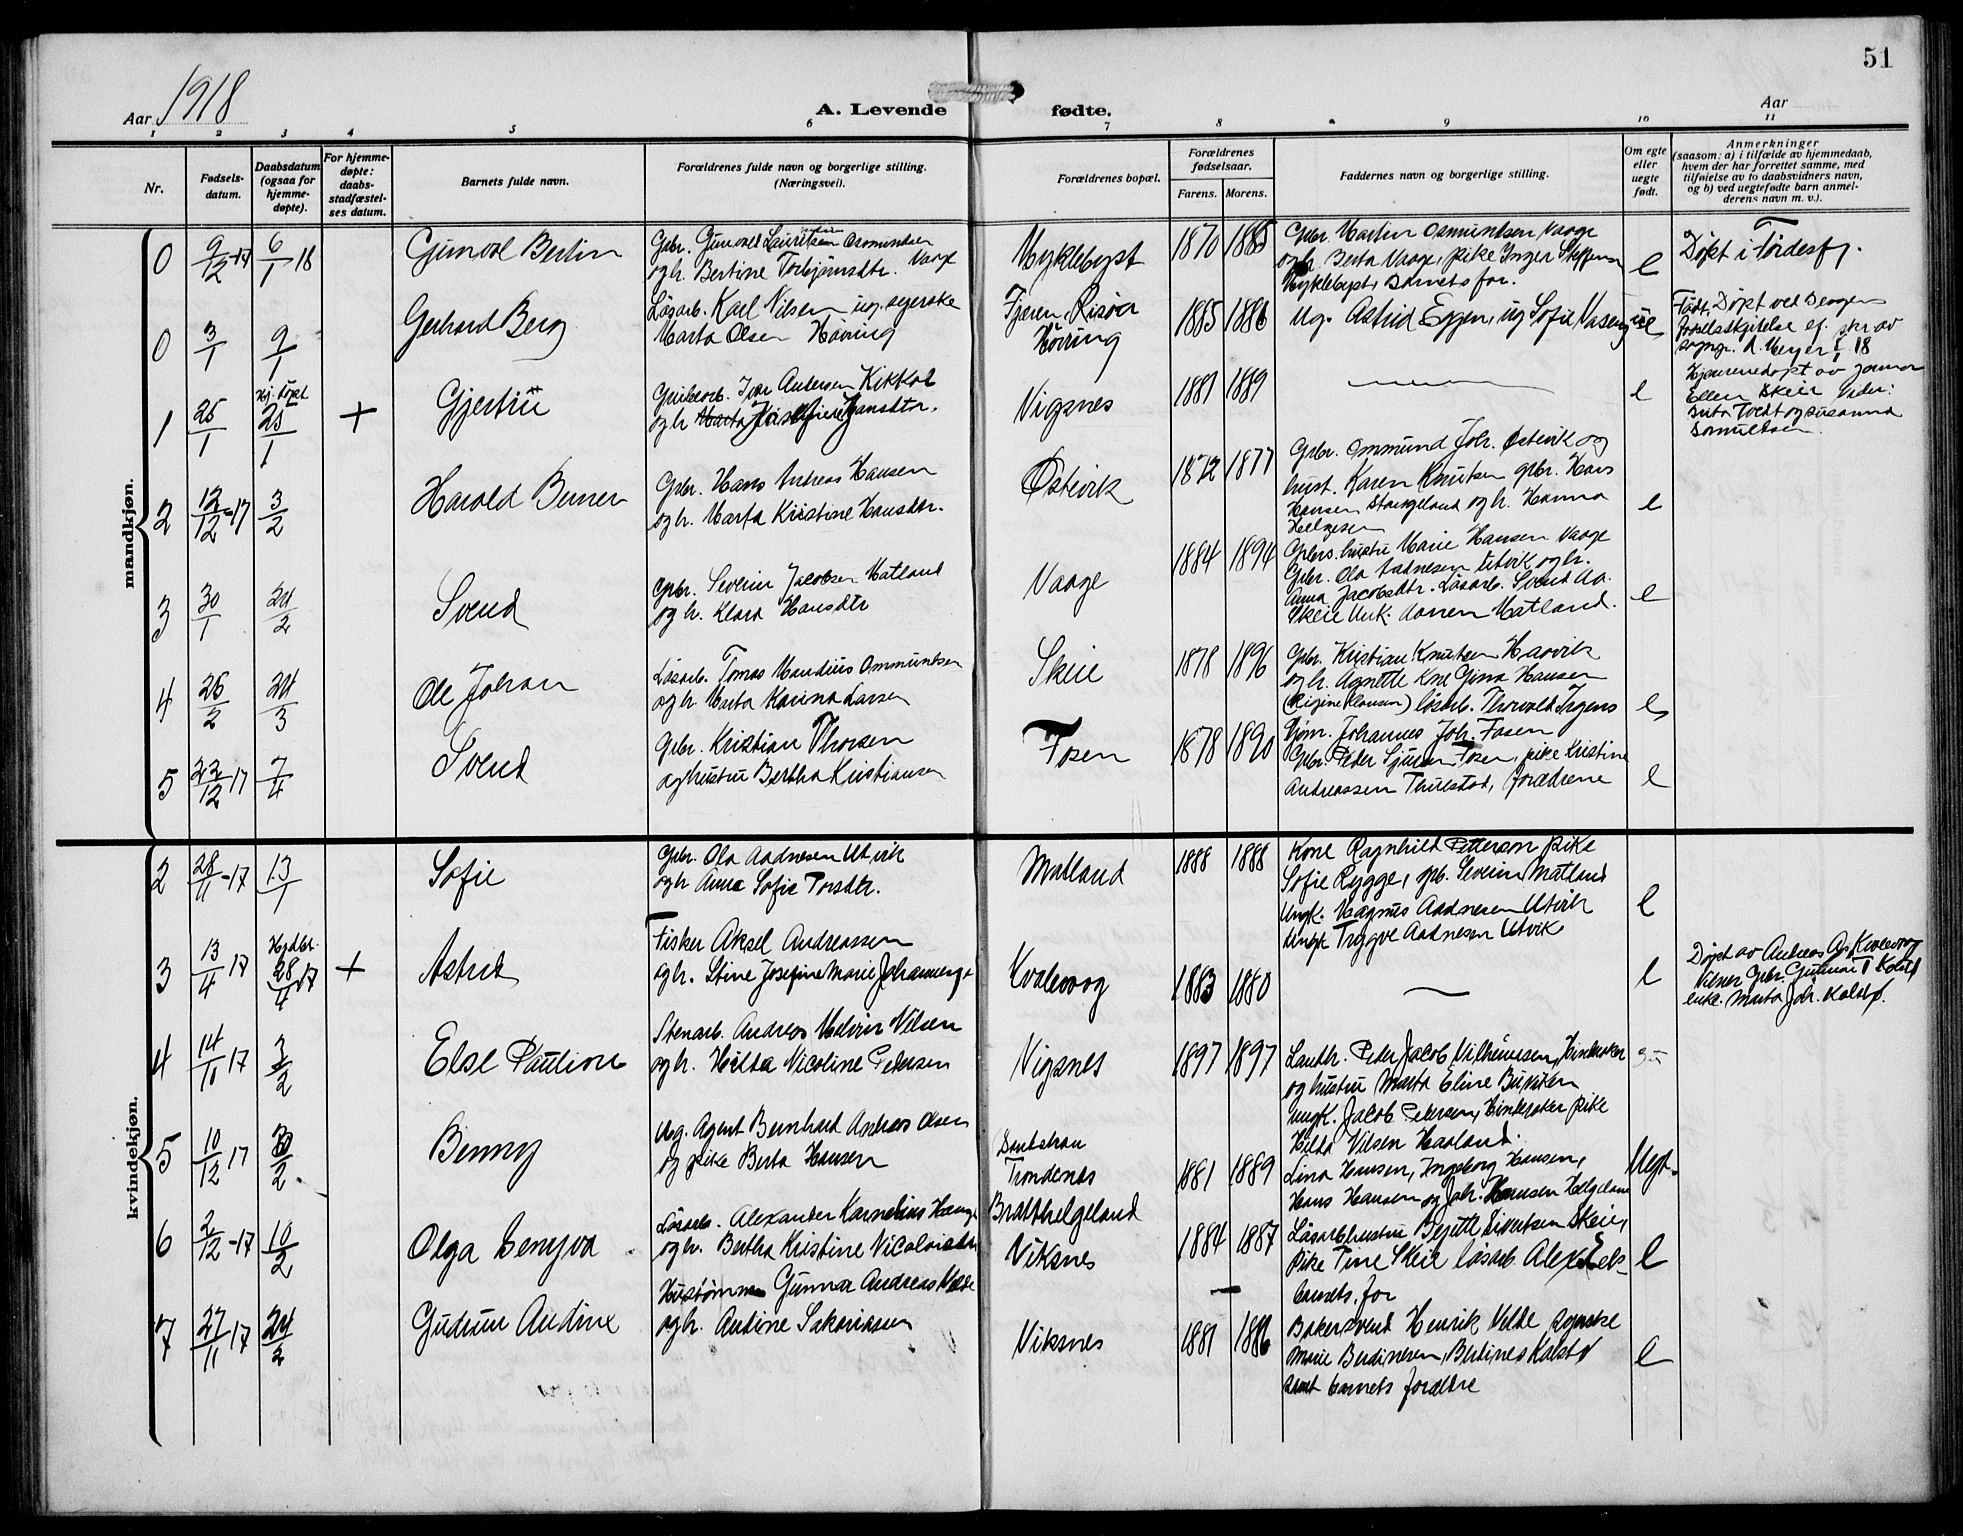 51
Aar 1918
A. Levende fødte.
Aar
1 2 3 4 5 6 7 8 9 10 11
Nr.
Fødsels-
datum.
Daabsdatum
(ogsaa for
hjemme-
døpte).
For hjemme-
døpte:
daabs-
stadfæstel-
ses datum.
Barnets fulde navn.
Forældrenes fulde navn og borgerlige stilling.
(Næringsvei).
Forældrenes bopæl.
Forældrenes
fødselsaar.
Farens. Morens.
Faddernes navn og borgerlige stilling.
Om egte
eller
uegte
født.
Anmerkninger
(saasom: a) i tilfælde av hjemmedaab,
hvem der har forrettet samme, med
tilføielse av to daabsvidners navn,
og b) ved uegtefødte barn anmel-
derens navn m. v.).
mandkjøn.
0 9/12-17 6/1-18 Gunvald Bertin
Gbr. Gunvald Lauritsen Osmundsen Vaage
og h. Bertine Torbjørnsdtr.
Myklebyst 1870 1885
Gbr. Martin Osmundsen Vaage
og h. Berta Vaage, pike Inger Steffensen
Myklebyst, Barnets far.
e
Døpt i Førdesfj.
0 3/1 9/1 Gerhard Berg
Løsarb. Karl Nilsen ug. syerske
Marta Olsen Høvring
Fjæren, Risør
Høvring
1885 1886
Ug. Astrid Eggen, ug Sofie Vaseng
ue
Født, Døpt ved Bergens
fødselsstiftelse ef. skr av
sognpr. A. Meyer 18
1 25/1 Hj. døpt 25/1 + Gjertin
Grubearb. Iver Andersen Kikkol
og h. Marta Josefine Hansdtr.
Vigsnes 1881 1889
e
Hjemmedøpt av jormor
Ellen Skeie Vidner:
Berta Tvedt og Susanna
Samuelsen.
2 12/12-17 3/2 Harald Berner
Gbr. Hans Andreas Hansen
og h. Marta Kristine Hansdtr.
Østivik 1872 1877
Gbr. Ommund Joh. Østivik og
hust. Karen Knutsen gbr. Hans
Hansen Stangeland og h. Hanna
Helgesen
e
3 30/1 24/2 Svend
Gbr. Severin Jacobsen Matland
og h. Klara Hansdtr
Vaage 1884 1894
Gbrs. hustru Marie Hansen Vaage
Gbr. Ola Aadnesen Utvik og h.
Anna Jacobsdtr. Løsarb. Svend Aa.
Skeie Unk. Aanen Matland.
e
4 26/2 24/3 Ole Johan
Løsarb. Tomas Mandius Ommundsen
og h. Marta Karina Larsen
Skeie 1878 1896
Gbr. Kristian Knutsen Haavik
og h. Agnette Kone Gina Hansen
(Rigine Clausen) løsarb. Thorvald Irgens
e
5 22/12-17 7/4 Svend
Gbr. Kristian Thorsen
og hustru Bertha Kristiansen
Fosen 1878 1890
Tjom. Johannes Joh. Fosen
Gbr. Peder Sjursen Fosen, pike Kristine
Andreassen Thuestad, forældrene
e
kvindekjøn.
2 28/11-17 13/1 Sofie
Gbr. Ola Aadnesen Utvik
og h Anna Sofie Torsdtr.
Matland 1888 1888
Kone Ragnhild Petterson pike
Sofie Rygge, gb. Severin Matland
Ungk. Magnus Aadnesen Utvik
Ungk Trygve Aadnesen Utvik
e
3 13/4 17 Hjdbt. 28/4 17 + Astrid
Fisker Aksel Andreassen
og h. Stine Josefine Marie Johannesen
Kvalevaag 1883 1880
e
Døpt av Andreas As Kvalevaag
Vidner Gbr. Gunnar T Kolstø
enke. Marta Joh. Kolstø.
4 14/10 17 3/2 Else Pauline
Stenarb. Andreas Melvin Nilsen
og h. Hilda Nicoline Petersen
Vigsnes 1897 1897
Landh. Peder Jacob Vilhelmsen, Hinderaker
og hustru Marta Eline
ungk. Jacob Petersen, Hinderaker pike
Hilda Nilsen Haaland.
5 10/12 17 3/2 Benny
Ug. Agent Bernhard Andreas Olsen
og pike Berta Hansen
Trondenes
Bratthelgeland
1881 1889
Lina Hansen, Ingeborg Hansen,
Hans Hansen og Joh. Hansen Helgeland
Uegt.
6 2/12-17 10/2 Olga Genyva
Løsarb. Alexander Kornelius Hauge
og h. Bertha Kristine Nicolaisdtr
Viksnes 1884 1887
Løsarb hustru Bejitte Sivertsen Skeie,
Pike Tine Skeie løsarb.
barnets far
e
7 27/11-17 24/2 Gudrun Andine
Hustømmer Gunnar Andreas Velde
og h. Andine Sakariassen
Viksnes 1881 1886
Bakersvend Henrik Velde syerske
Marie Berdinesen, Bertines Kolstø
samt barnets forældre
e